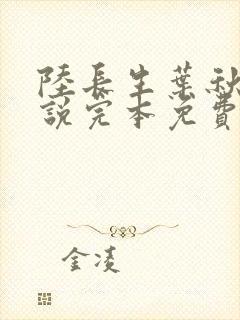 陸長生葉秋
說完本免費
金凌